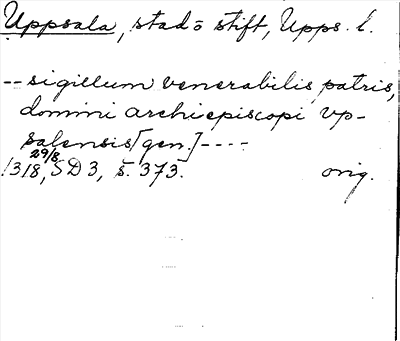 Uppsala, stad o stift, Upps. l.
-- sigillum venerabilis patris,
domini archiepiscopi vp-
salensis [gen.] ----
29/8
1318, SD 3, s. 373. orig.